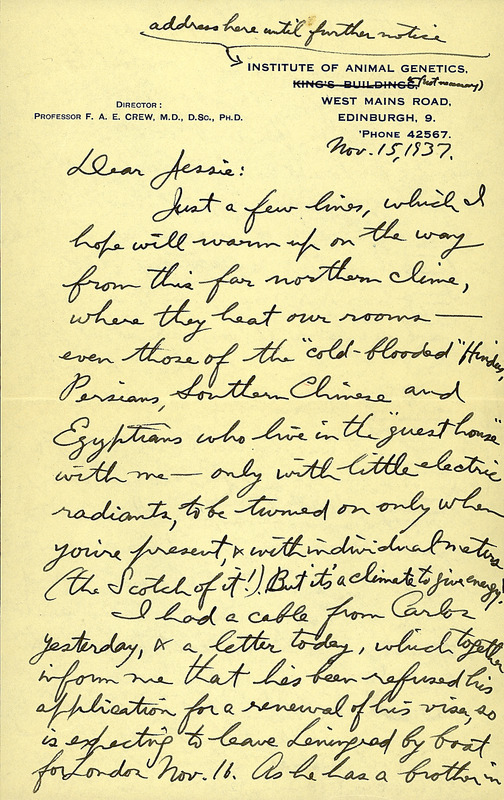 address here until further notice
INSTITUTE OF ANIMAL GENETICS,
KING'S BUILDINGS, (not necessary)
WEST MAINS ROAD,
EDINBURGH, 9.
'PHONE 42567.
DIRECTOR:
PROFESSOR F. A. E. CREW, M.D., D.SC., PH.D.
Nov. 15, 1937.
Dear Jessie:
Just a few lines, which I
hope will warm up on the way
from this far northern clime,
where they heat our rooms —
even those of the "cold-blooded" Hindus,
Persians, Southern Chinese and
Egyptians who live in the "guest house"
with me — only with little electric
radiants, to be turned on only when
you're present, & with individual meters
(the Scotch of it!). But it's a climate to give energy.
I had a cable from Carlos
yesterday, & a letter today, which together
inform me that he's been refused his
application for a renewal of his visa, so
is expecting to leave Leningrad by boat
for London Nov. 16. As he has a brother in